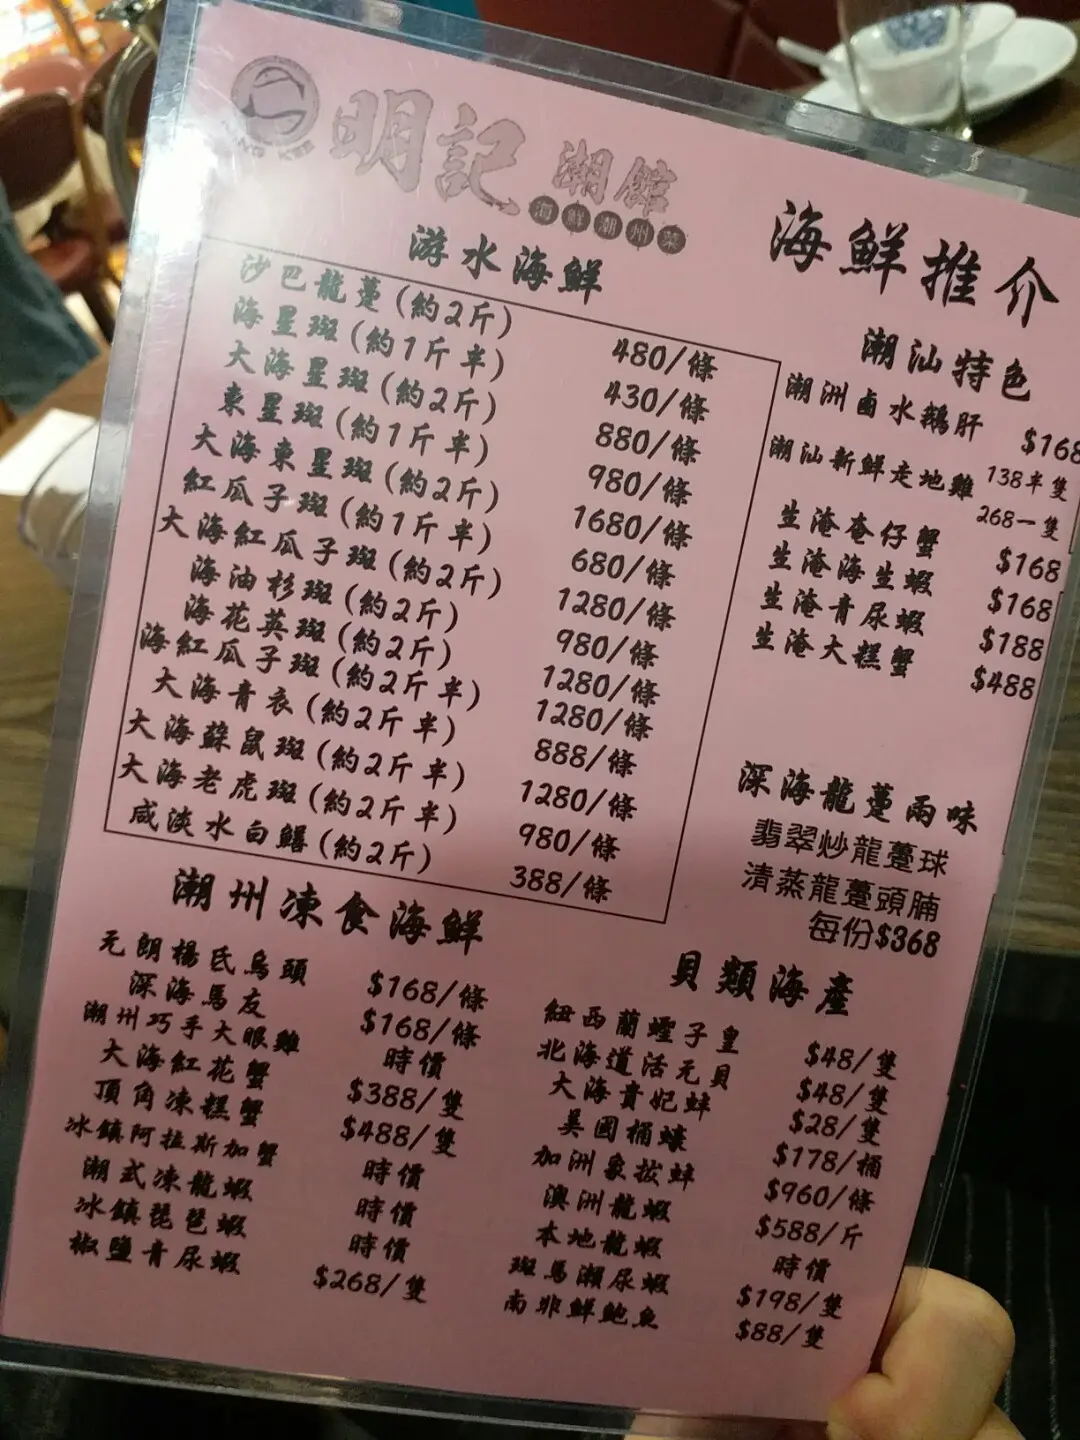 明記 潮館
海鮮潮州菜
海鮮推介
游水海鮮
沙巴龍躉(約2斤) 480/條
海星斑(約1斤半) 430/條
大海星斑(約2斤) 880/條
東星斑(約1斤半) 980/條
大海東星斑(約2斤) 1680/條
紅瓜子斑(約1斤半) 680/條
大海紅瓜子斑(約2斤) 1280/條
海油杉斑(約2斤) 980/條
海花英斑(約2斤) 1280/條
海紅瓜子斑(約2斤半) 1280/條
大海青衣(約2斤半) 888/條
大海蘇鼠斑(約2斤半) 1280/條
大海老虎斑(約2斤半) 980/條
咸淡水白鱔(約2斤) 388/條
潮汕特色
潮洲鹵水鵝肝 $168
潮汕新鮮走地雞 138半隻
268一隻
生淹奄仔蟹 $168
生淹海生蝦 $168
生淹青尿蝦 $188
生淹大糕蟹 $488
深海龍躉兩味
翡翠炒龍躉球
清蒸龍躉頭腩
每份$368
潮州凍食海鮮
元朗楊氏烏頭 $168/條
深海馬友 $168/條
潮州巧手大眼雞 時價
大海紅花蟹 $388/隻
頂角凍糕蟹 $488/隻
冰鎮阿拉斯加蟹 時價
潮式凍龍蝦 時價
冰鎮琵琶蝦 時價
椒鹽青尿蝦 $268/隻
貝類海產
紐西蘭蟶子皇 $48/隻
北海道活元貝 $48/隻
大海貴妃蚌 $28/隻
美國桶蠔 $178/桶
加洲象拔蚌 $960/條
澳洲龍蝦 $588/斤
本地龍蝦 時價
斑馬瀨尿蝦 $198/隻
南非鮮鮑魚 $88/隻